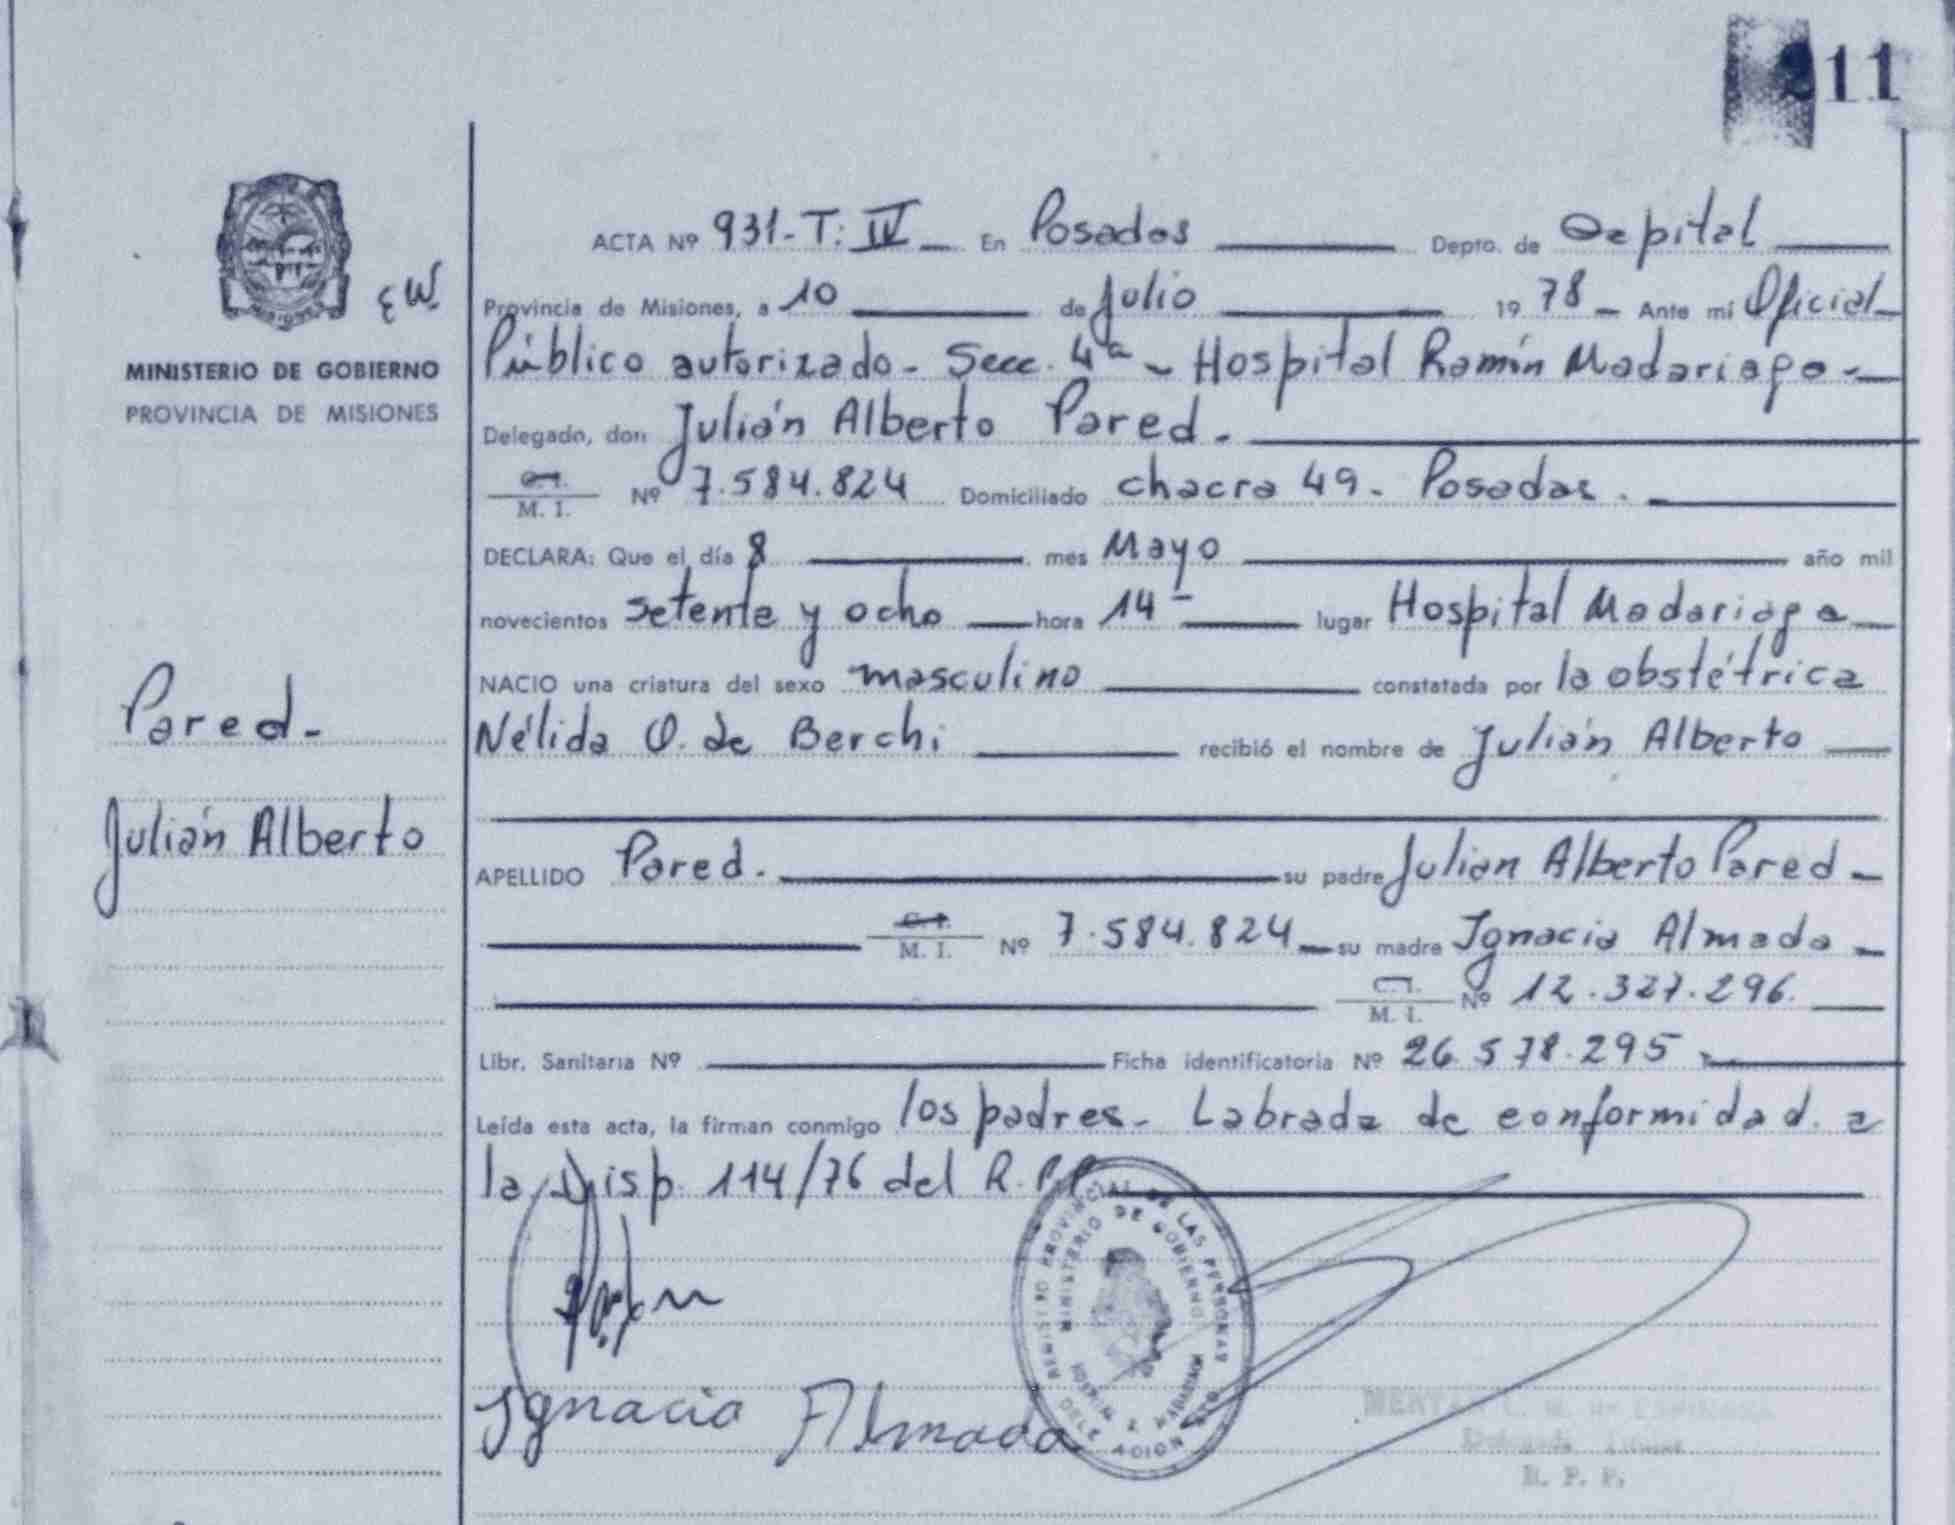 211
ACTA Nº 931-T: IV En Posadas Depto. de Capital
Provincia de Misiones, a 10 de Julio 1978 Ante mí Oficial
Público autorizado - Secc. 4ª - Hospital Ramón Madariaga -
Delegado, don Julián Alberto Pared.
C. I.
M. I. Nº 7.584.824 Domiciliado chacra 49 - Posadas.
DECLARA: Que el día 8 mes Mayo año mil
novecientos setenta y ocho hora 14 - lugar Hospital Madariaga
NACIO una criatura del sexo masculino constatada por la obstétrica
Nélida O. de Berchi recibió el nombre de Julián Alberto
APELLIDO Pared. su padre Julian Alberto Pared -
C. I.
M. I. Nº 7.584.824 su madre Ignacia Almada -
C. I.
M. I. Nº 12.327.296.
Libr. Sanitaria Nº Ficha identificatoria Nº 26.578.295
Leída esta acta, la firman conmigo los padres - Labrada de conformidad. a
la Disp. 114/76 del R.P.P.
Ignacia Almada
REGISTRO PROVINCIAL DE LAS PERSONAS
MINISTERIO DE GOBIERNO
DELEGACION
R. P. P.
MISIONES
EW
MINISTERIO DE GOBIERNO
PROVINCIA DE MISIONES
Pared -
Julián Alberto